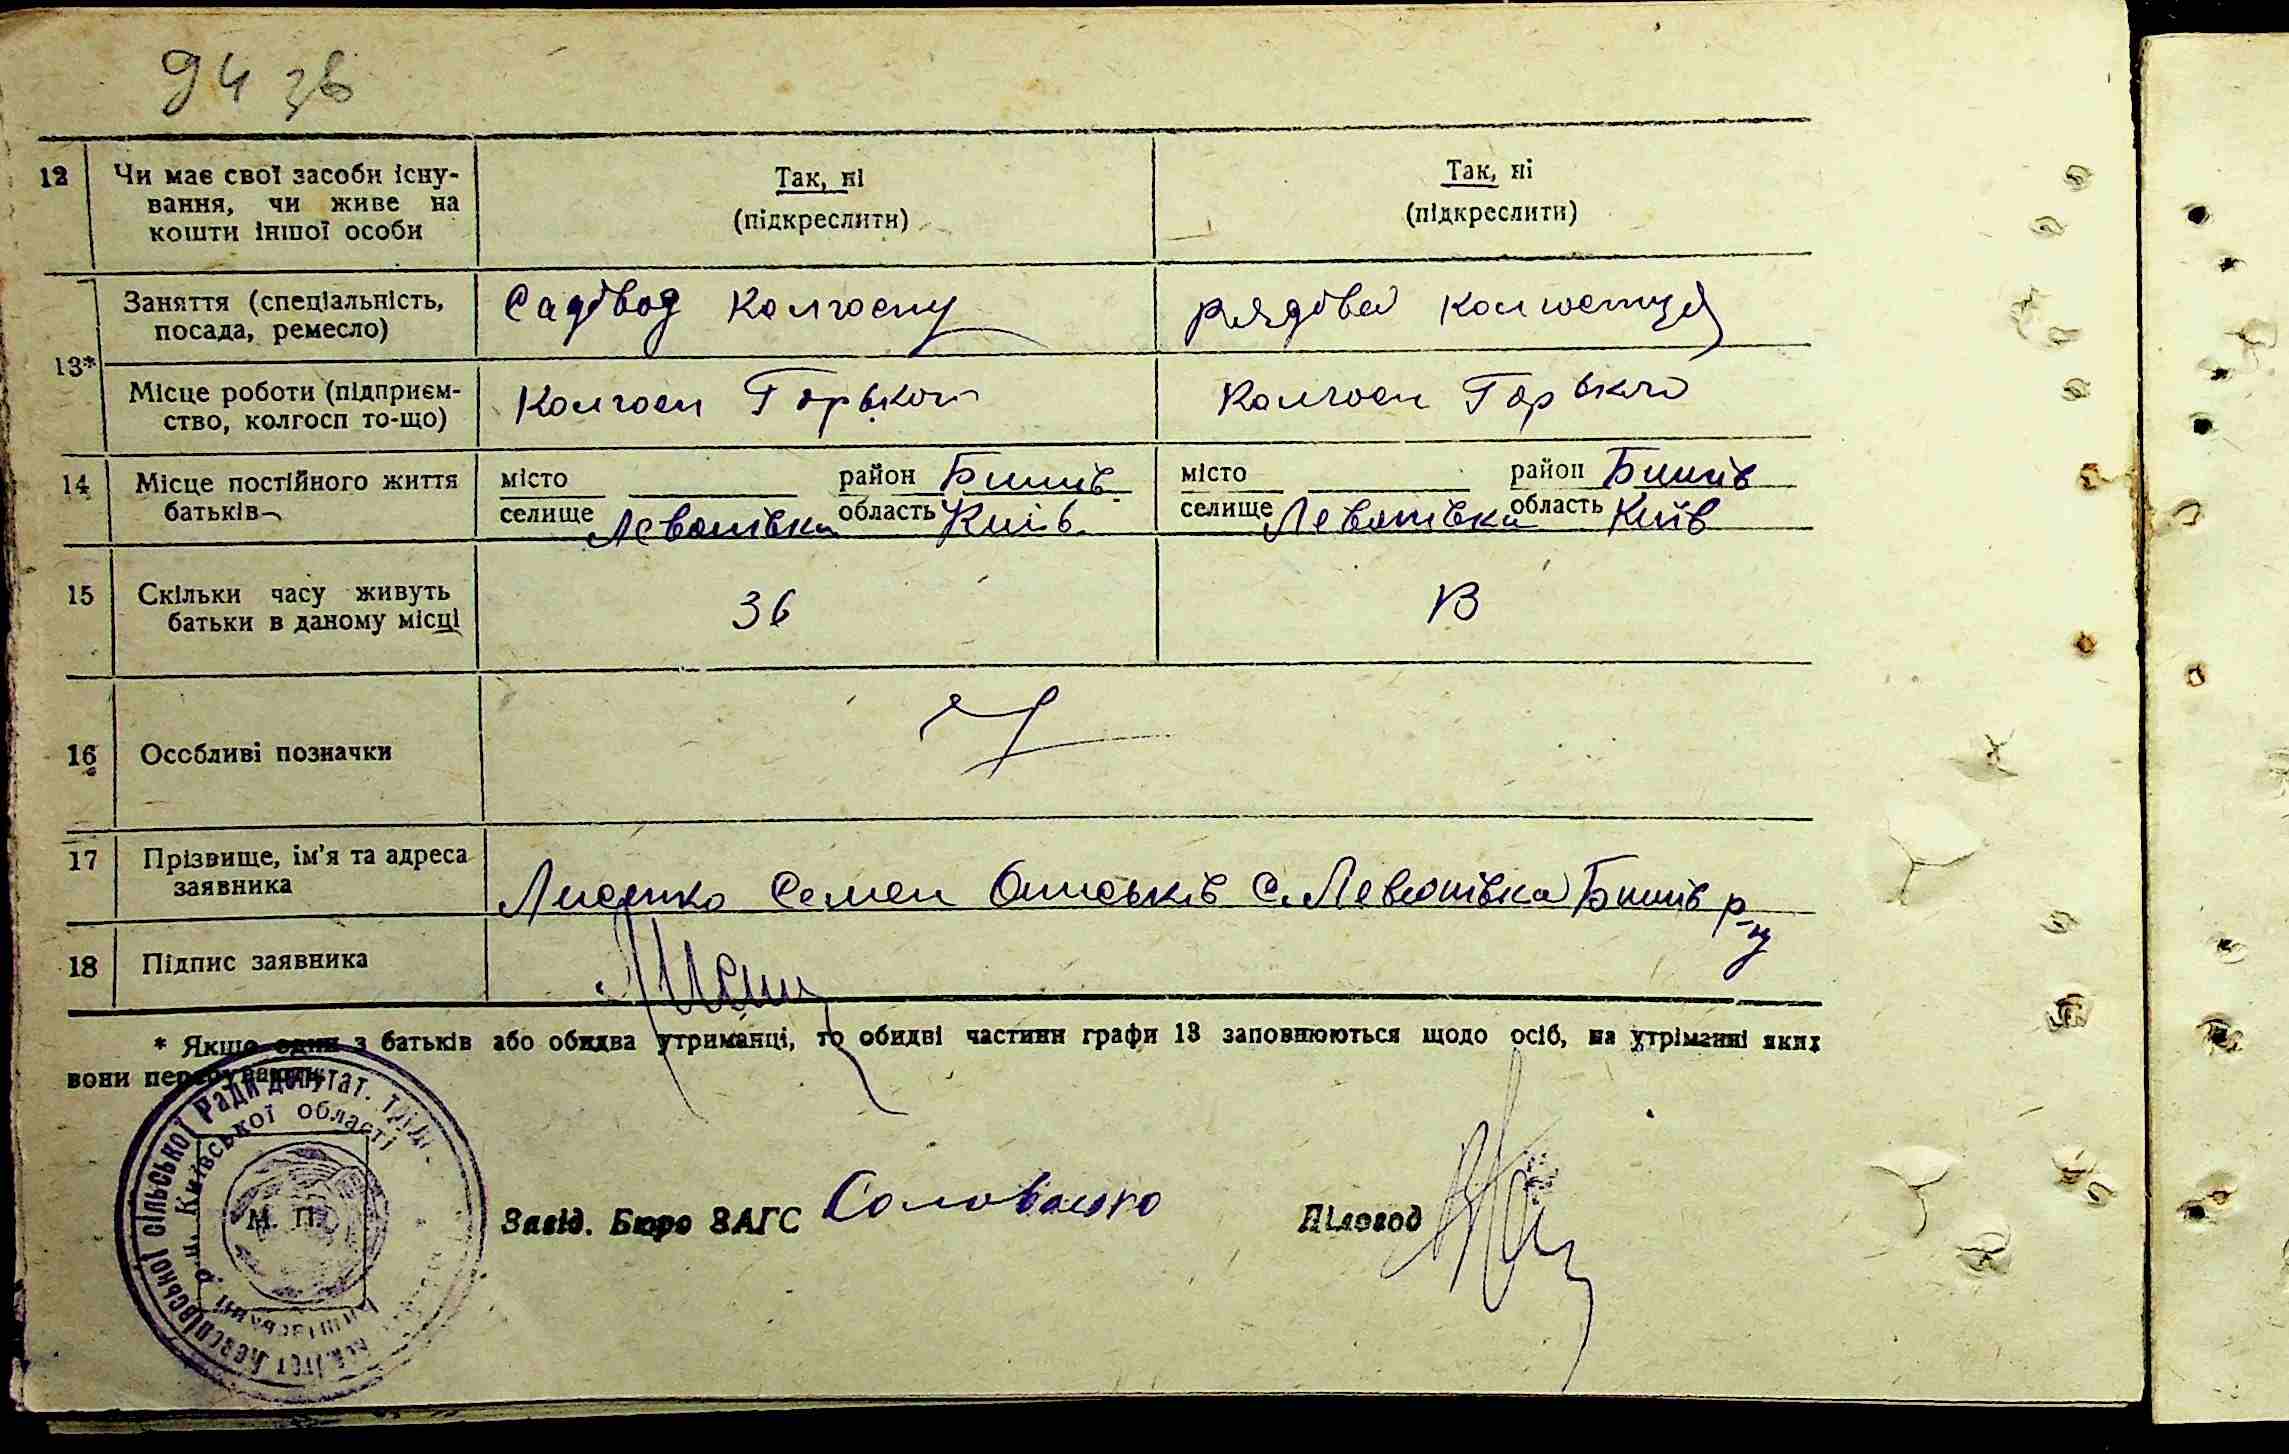 94 зв
12 Чи має свої засоби існу-
вання, чи живе на
кошти іншої особи
Так, ні
(підкреслити)
Так, ні
(підкреслити)
13*
Заняття (спеціальність,
посада, ремесло)
Садівод Колгоспу
Рядова колгоспниця
Місце роботи (підприєм-
ство, колгосп то-що)
Колгосп Горького
Колгосп Горького
14 Місце постійного життя
батьків
місто район Бишів
селище Леонівка область Київ
місто район Бишів
селище Леонівка область Київ
15 Скільки часу живуть
батьки в даному місці
36
13
16 Особливі позначки
17 Прізвище, ім'я та адреса
заявника
Семен с. Бишів р-ну
18 Підпис заявника
* Якщо один з батьків або обидва утриманці, то обидві частини графи 13 заповнюються щодо осіб, на утріманні яких
вони перебувають.
сільської Ради депутат. труд.
р-н. Київської області
М. П.
Завід. Бюро ЗАГС
Діловод